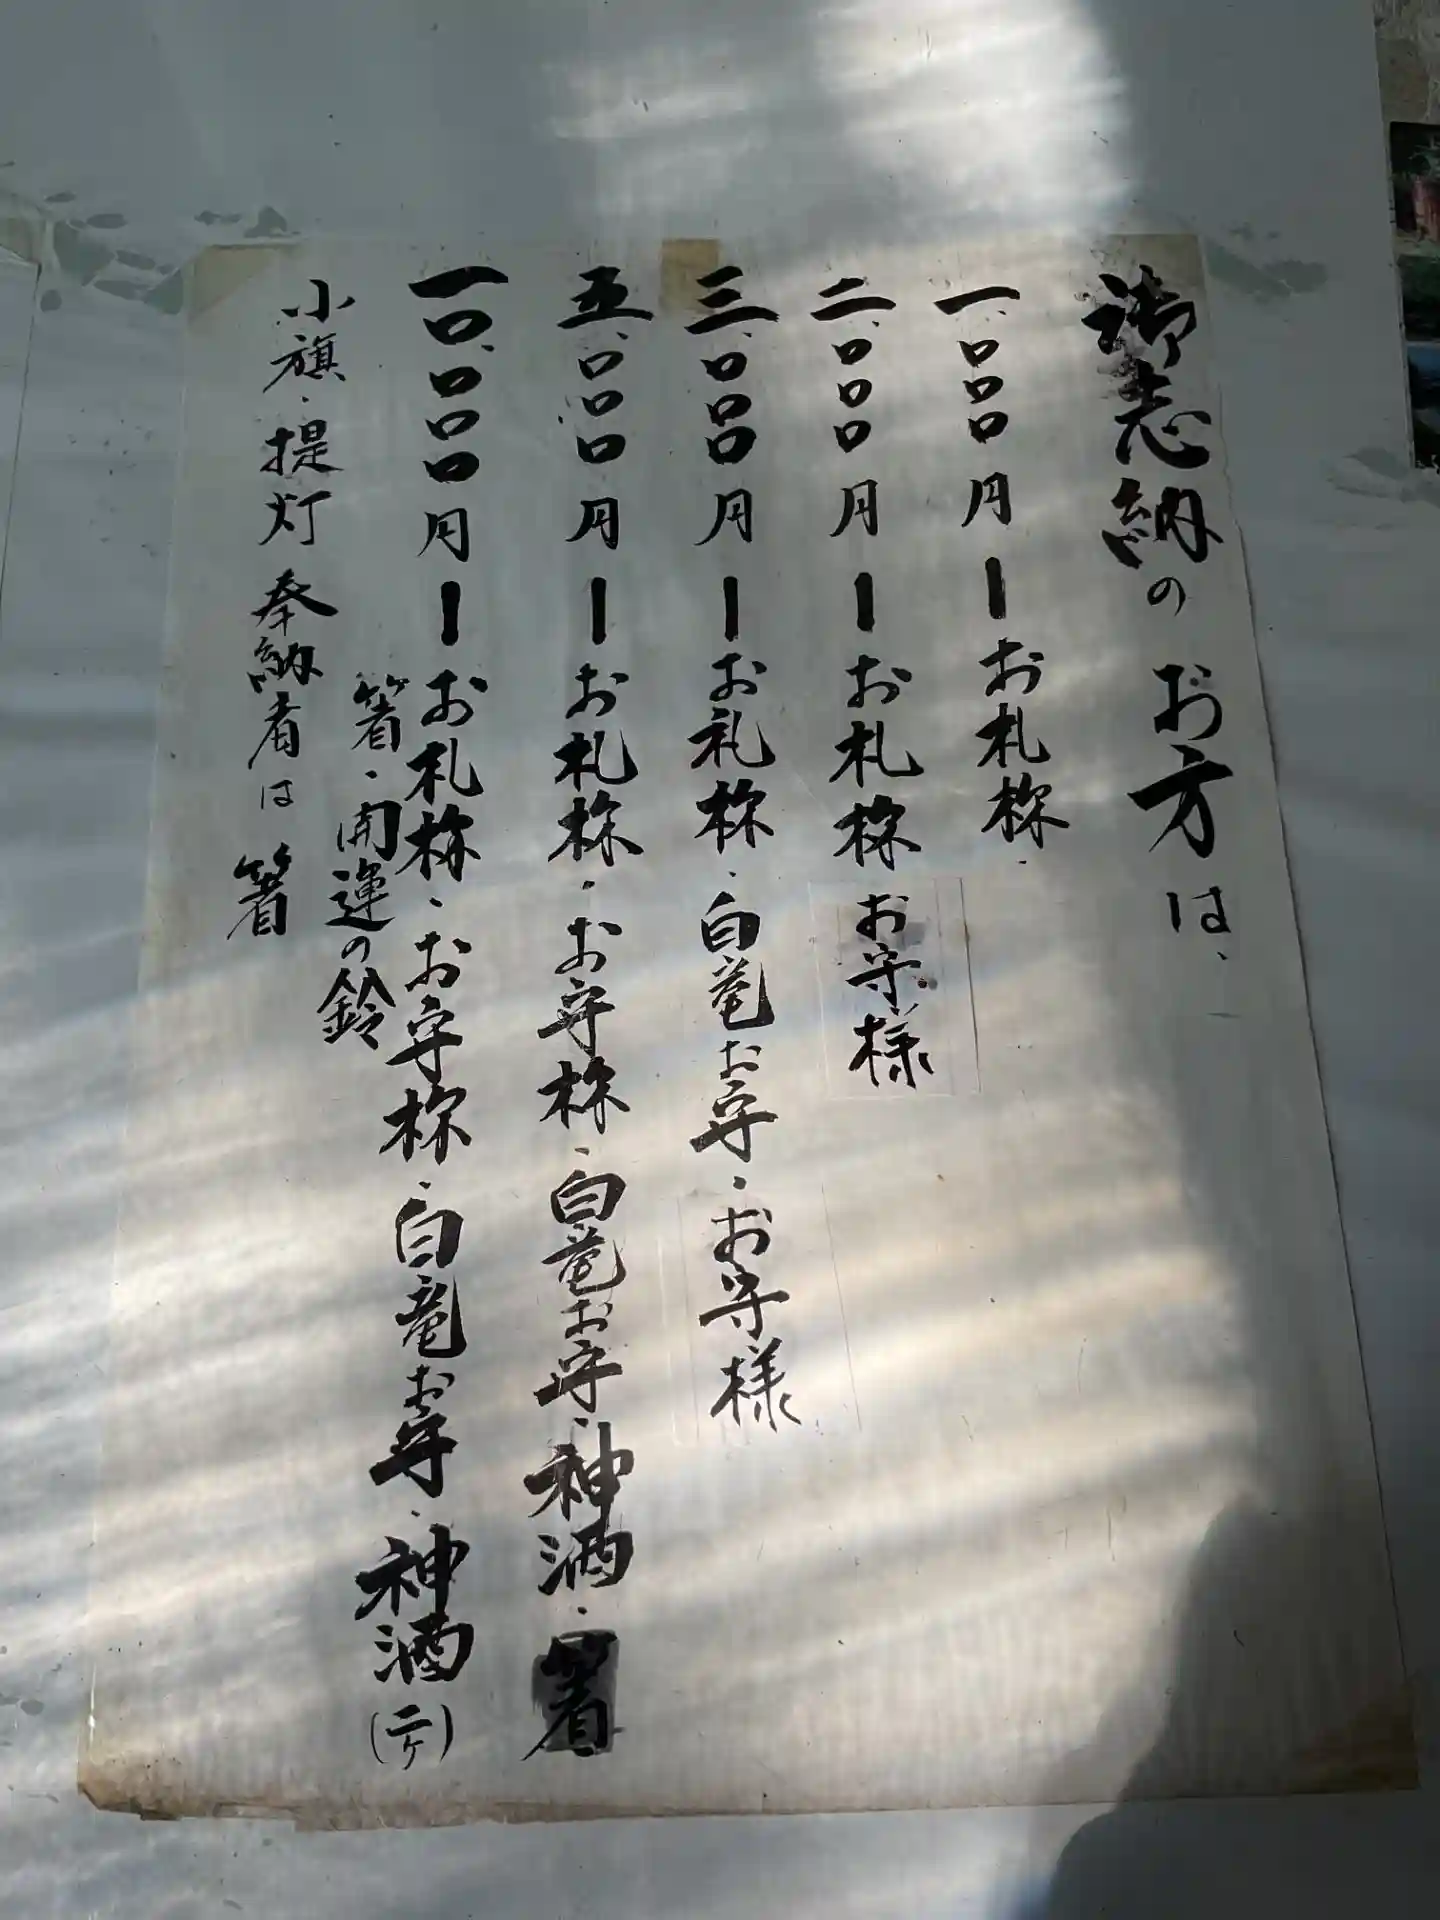 御志納のお方は、
一、〇〇〇円ーお札様・
二、〇〇〇円ーお札様お守様
三、〇〇〇円ーお礼様・白竜お守・お守様
五、〇〇〇円ーお札様・お守様・白竜お守・神酒・箸
一〇、〇〇〇円ーお札様・お守様・白竜お守・神酒(二ケ)
箸・開運の鈴
小旗・提灯奉納者は箸